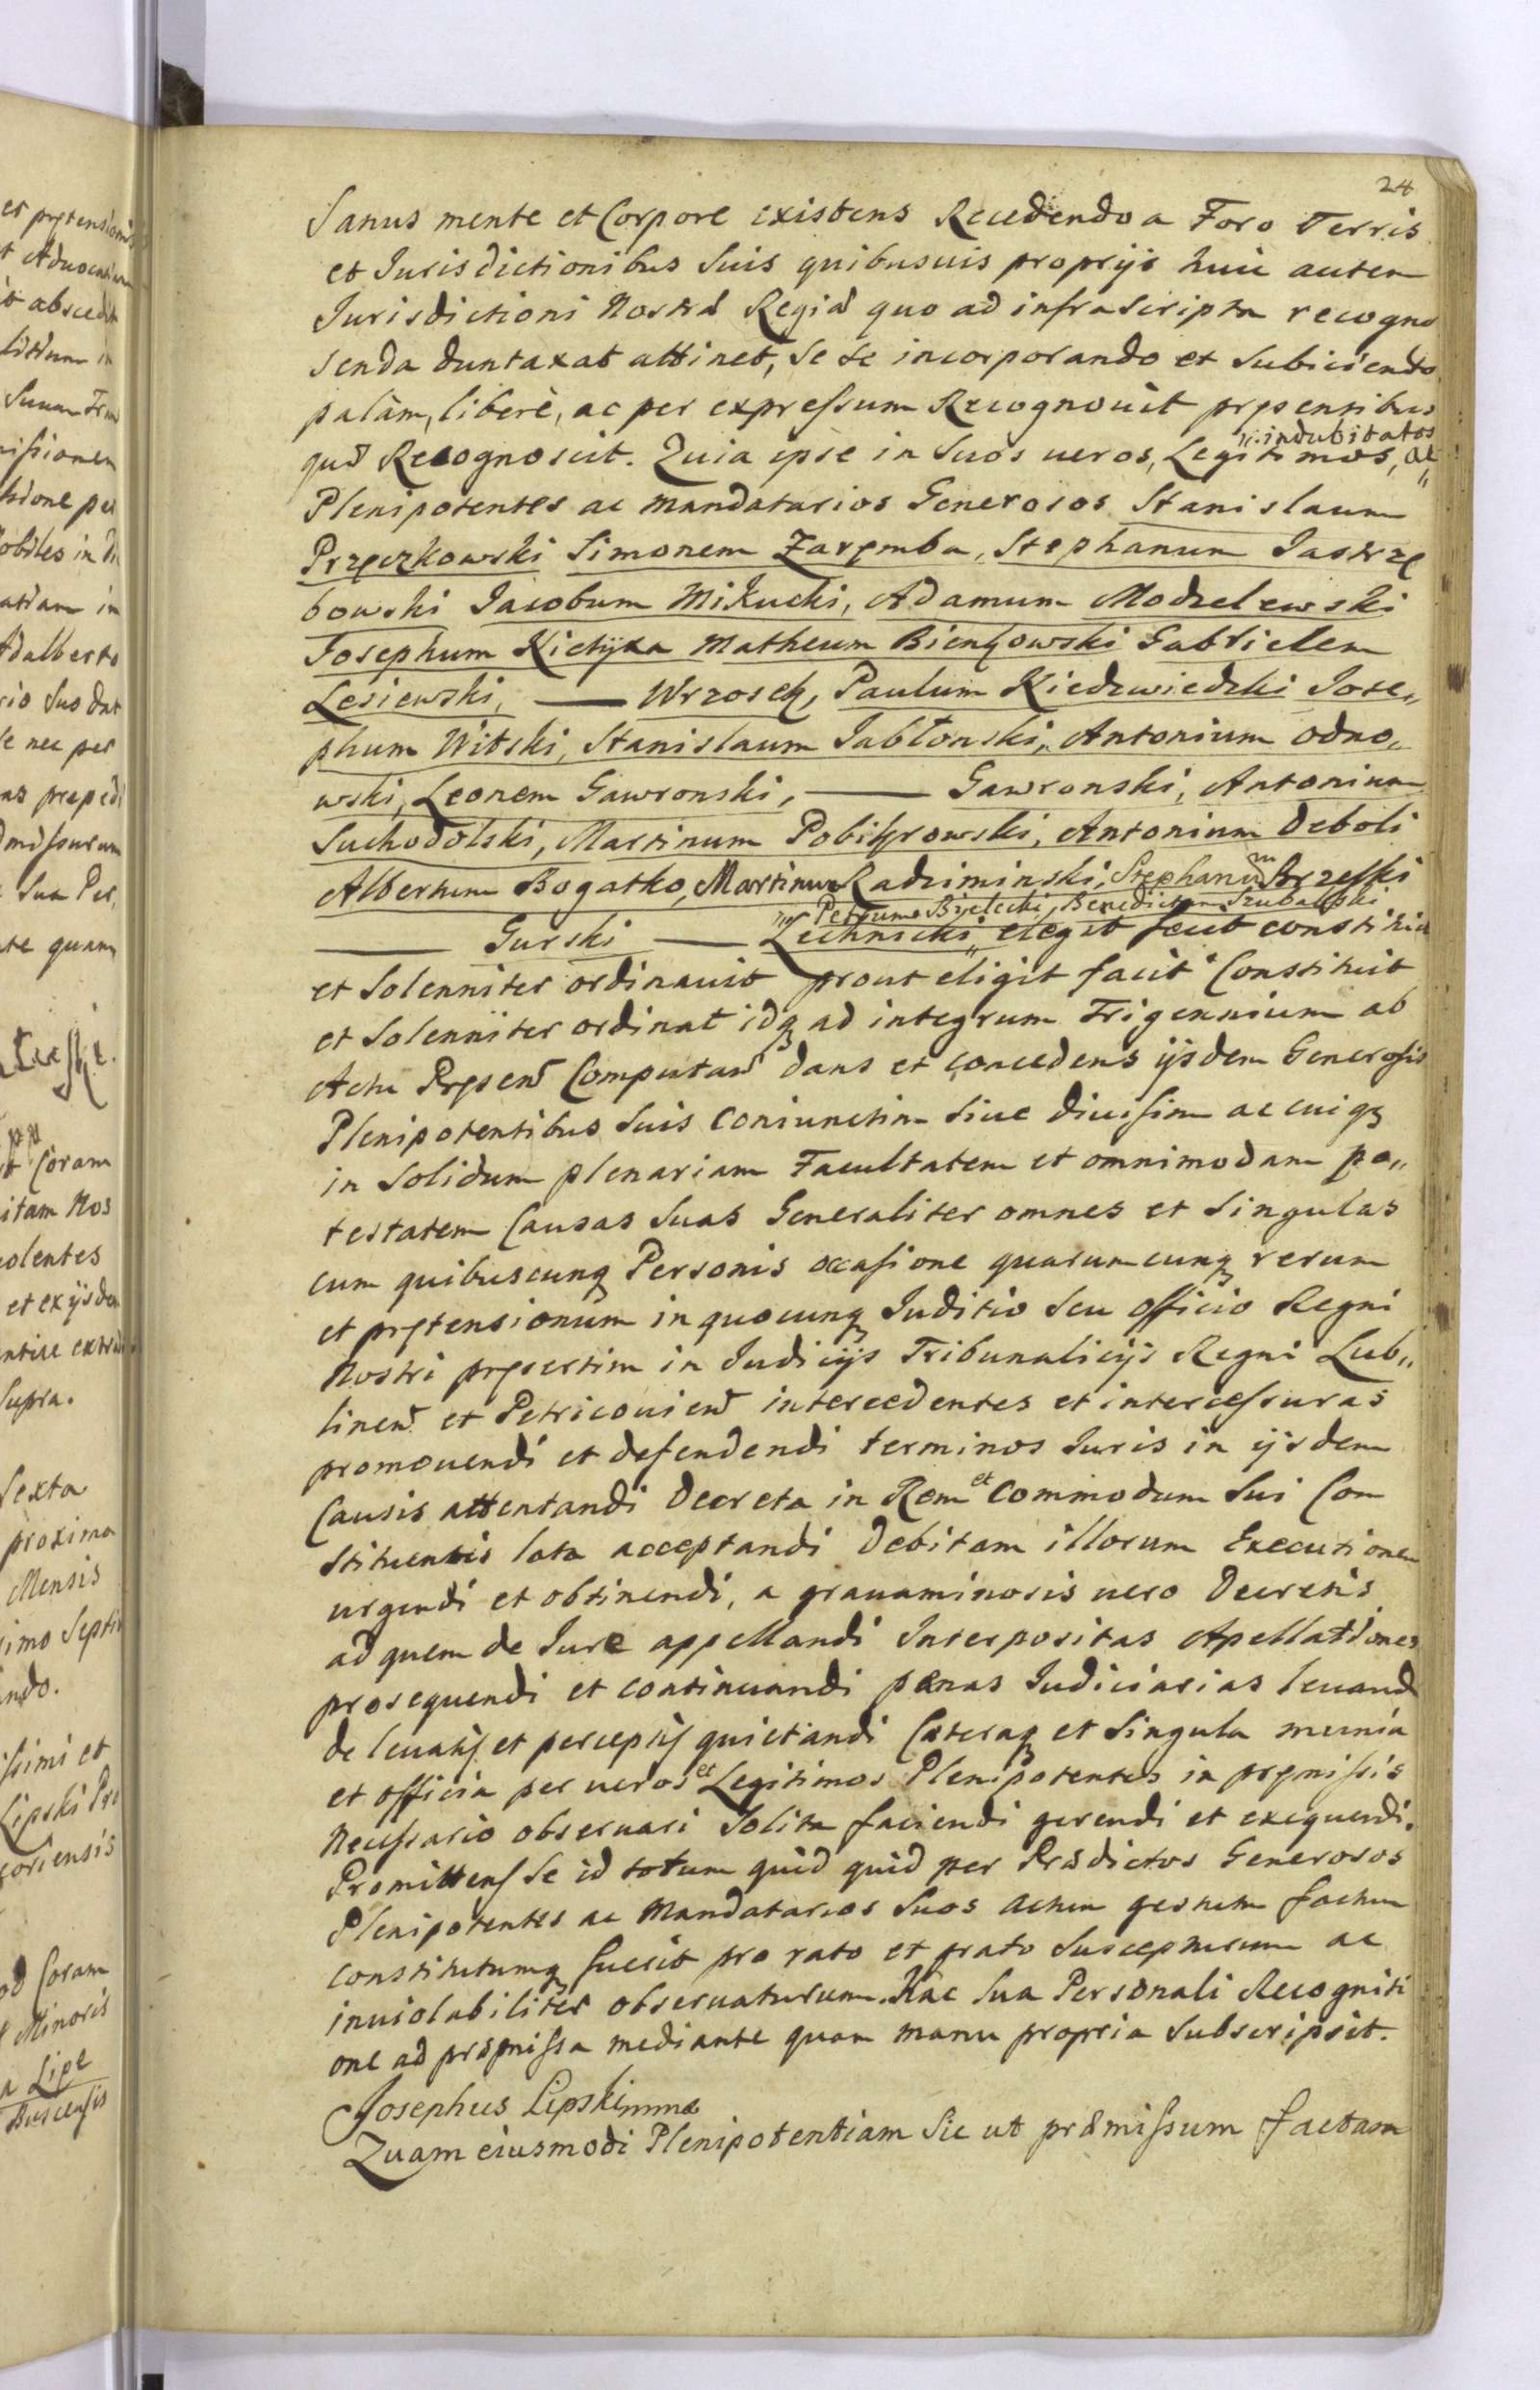 24
Sanus mente et Corpore existens Recedendo a Foro Terris
et Jurisdictionibus Suis quibusuis proprijs huic autem
Jurisdictioni Nostræ Regiæ quo ad infrascripta recogno
scenda duntaxat attinet, se se incorporando et subiciendo
palàm, liberè, ac per expressum Recognouit pręsentibus
quæ Recognoscit. Quia ipse in Suos ueros, Legitimos, ac
indubitatos
Plenipotentes ac mandatarios Generosos Stanislaum
Przęczkowski Simonem Zaręmba, Stephanum Jastrzę
bowski Jacobum Mikucki, Adamum Modzelewski
Josephum Kictyka Matheum Bienkowski Gabrielem
Lesiewski, — Wrzosek, Paulum Kiedzwiedzki Jose„
phum Witski, Stanislaum Jabłonski, Antonium Odno„
wski, Leonem Gawronski, — Gawronski, Antonium
Suchodolski, Martinum Pobikrowski, Antonium Deboli
Albertum Bogatko, Martinum Radziminski, Stephanum Brzeski
Petrum Bielecki, Benedictum Szubalski
— Gurski — Lechnicki, elegit fecit constituit
et Solenniter ordinauit prout eligit facit Constituit
et Solenniter ordinat idq ad integrum Trigennium ab
Actu Pręsen Computan dans et concedens ijsdem Generosis
Plenipotentibus Suis coniunctim siue diuisim ac cuiq
in Solidum plenariam Facultatem et omnimodam po„
testatem Causas Suas Generaliter omnes et Singulas
cum quibuscunq Personis occasione quarumcunq rerum
et prętensionum in quocunq Juditio seu officio Regni
Nostri pręsertim in Judicijs Tribunalicijs Regni Lub„
linen et Petricouien intercedentes et intercessuras
promouendi et defendendi terminos Juris in ijsdem
Causis attentandi Decreta in Rem et Commodum Sui Con
stituentis lata acceptandi debitam illorum Executionem
urgendi et obtinendi, a grauaminosis uero Decretis
ad quem de Jure appellandi Interpositas Apellationes
prosequendi et continuandi pænas Judiciarias leuand
de leuatis et perceptis quietandi Cæteraq et Singula munia
et officia per ueros et Legitimos Plenipotentes in pręmissis
Necessario obseruari Solita faciendi gerendi et exequendi.
Promittens Se id totum quid quid per Prædictos Generosos
Plenipotentes ac Mandatarios Suos actum gestum factum
constitutumq fuerit pro rato et grato Suscepturum ac
inuiolabiliter obseruaturum. Hac Sua Personali Recogniti
one ad præmissa mediante quam manu propria Subscripsit.
Josephus Lipski mma
Quam eiusmodi Plenipotentiam Sic ut præmissum factam